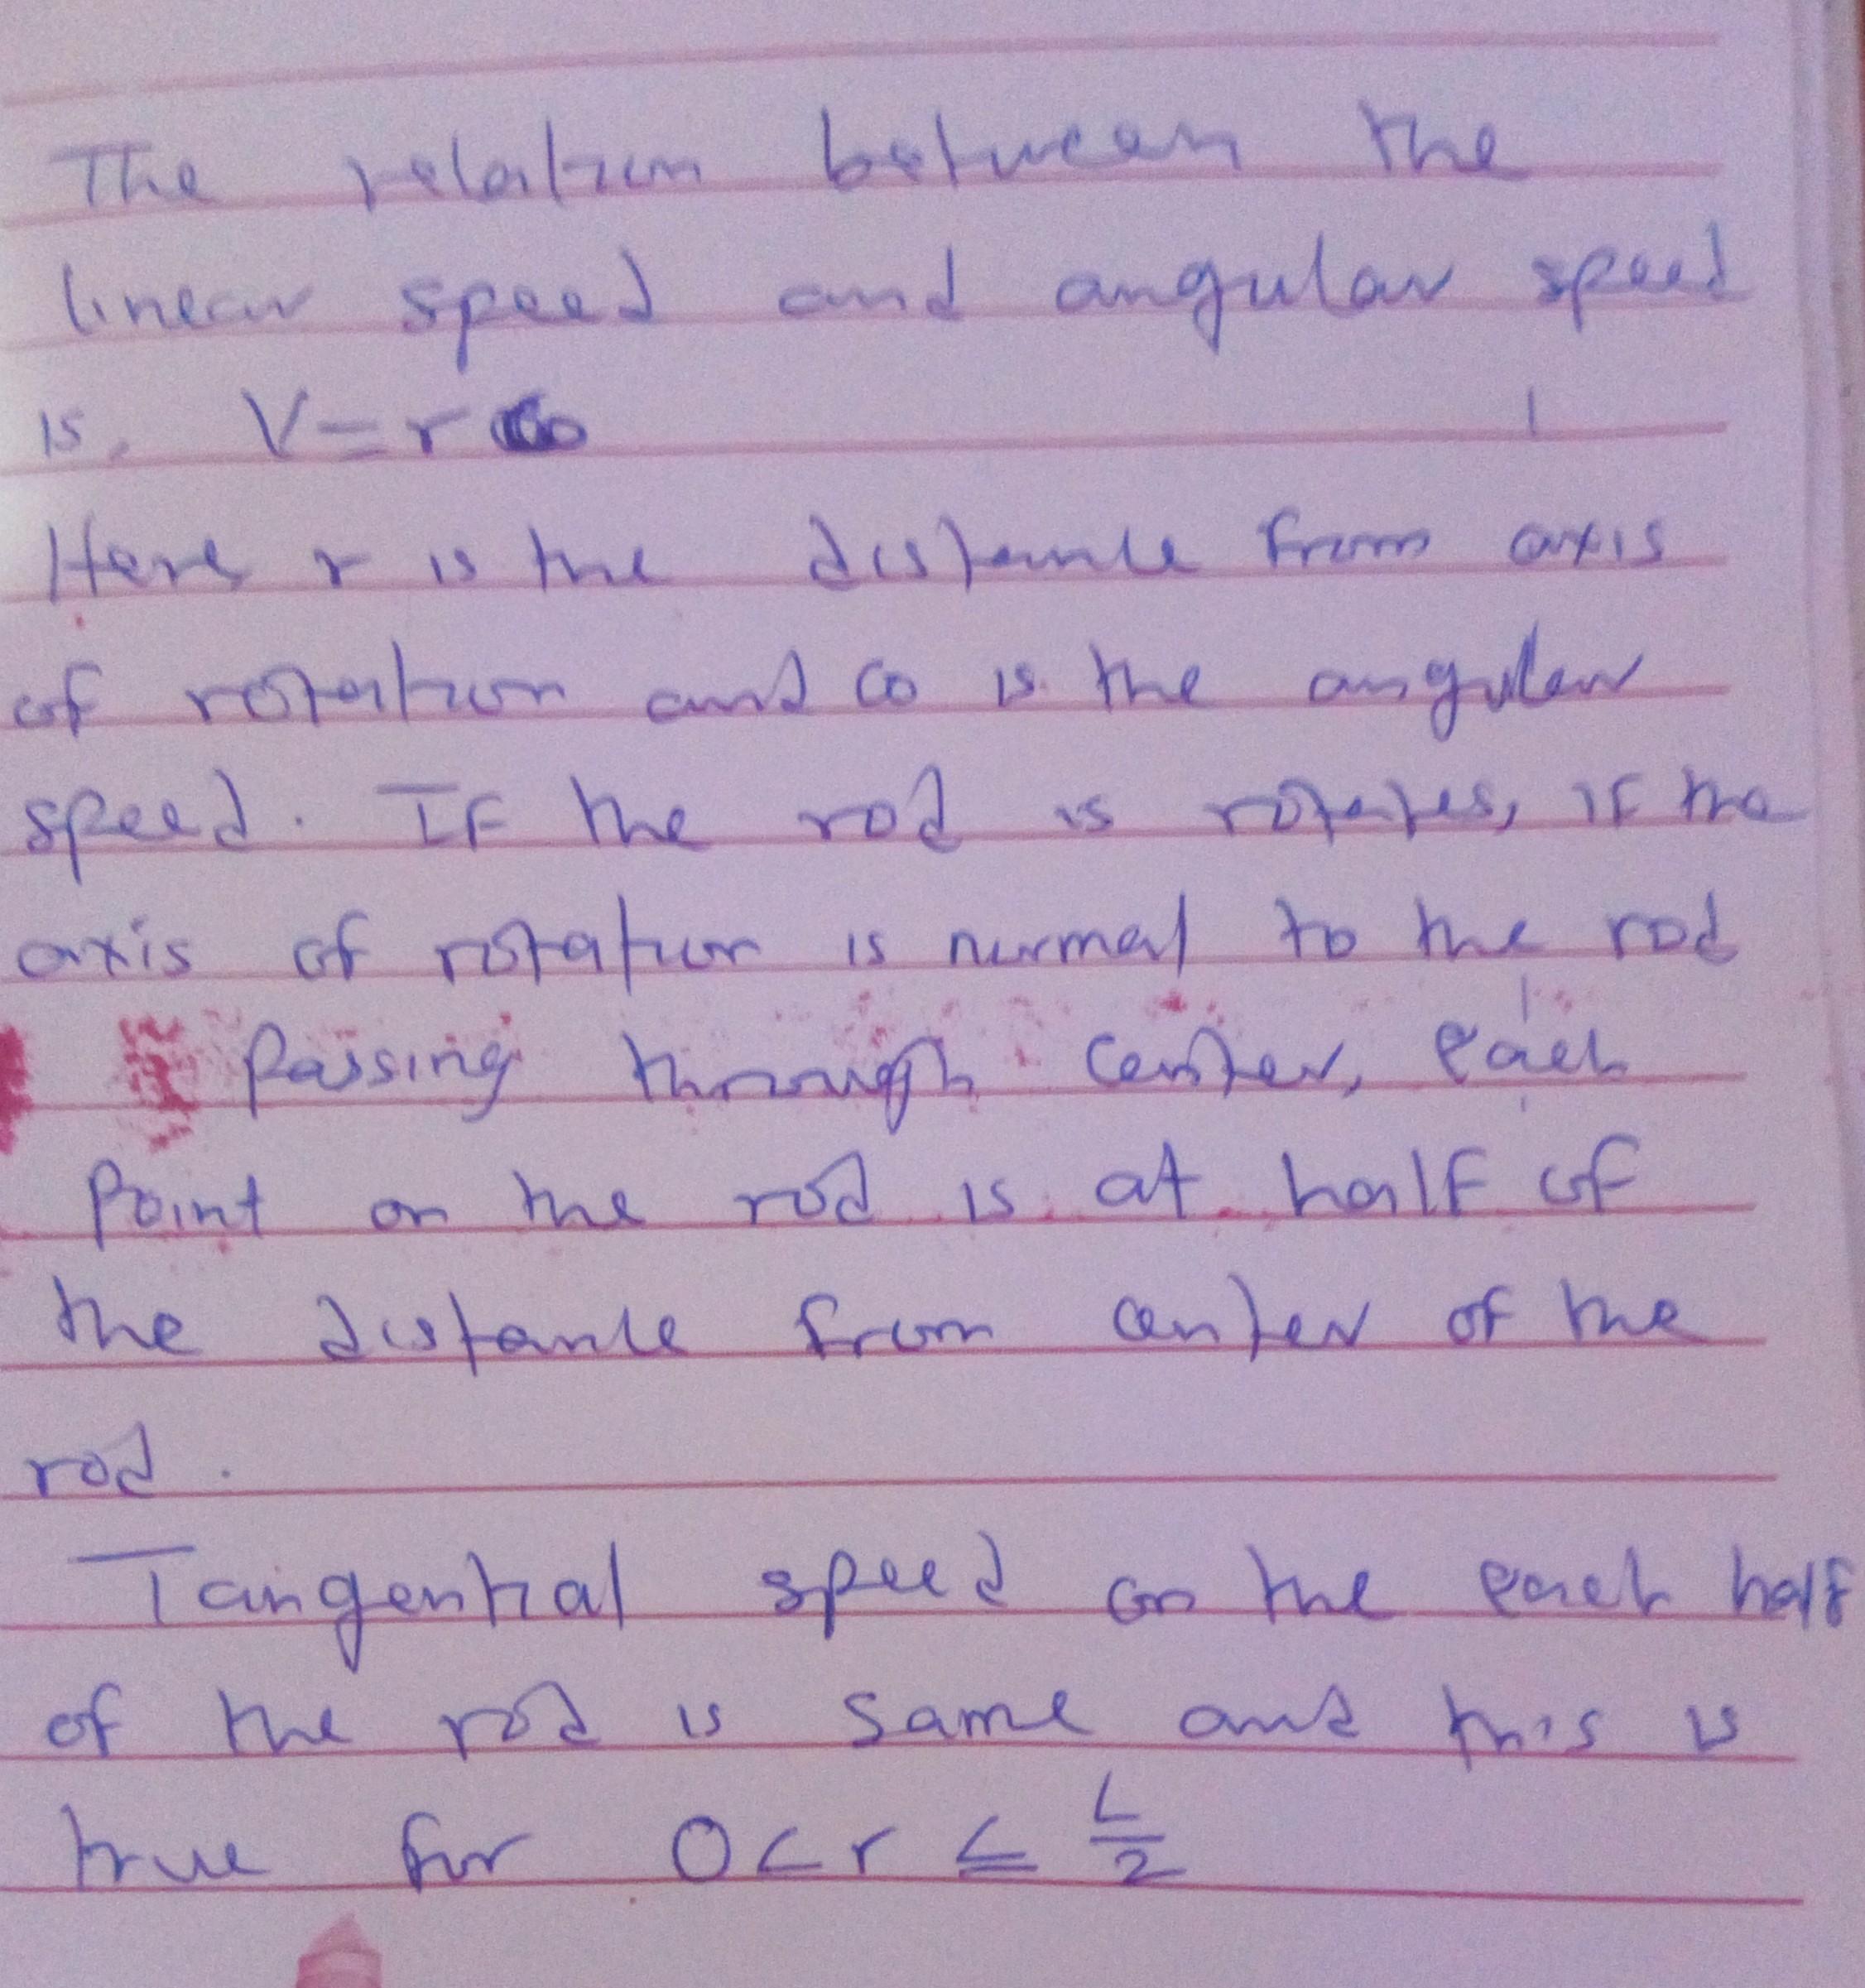 The relation between the
linear speed and angular speed
is, V=rω
Here r is the distance from axis
of rotation and ω is the angular
speed. If the rod is rotates, if the
axis of rotation is normal to the rod
Passing through center, each
Point on the rod is at half of
the distance from center of the
rod.
Tangential speed on the each half
of the rod is same and this is
true for 0<r≤L/2